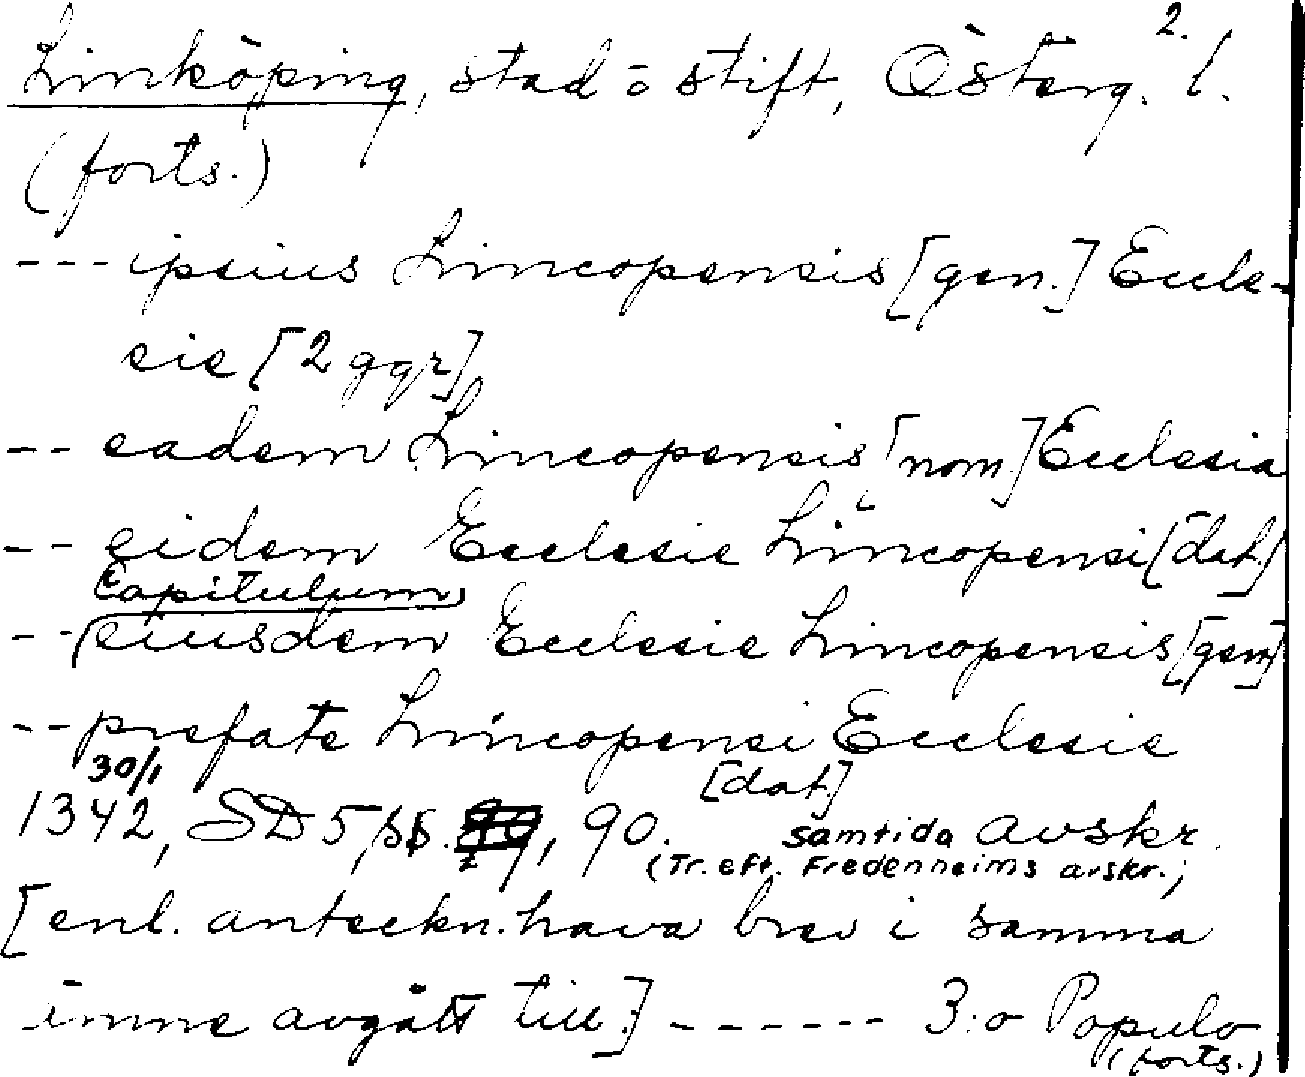 2.
Linköping, stad o stift, Österg. l.
(forts.)
--- ipsius Lincopensis [gen.] Eccle-
sie [2 ggr]
-- eadem Lincopensis [nom.] Ecclesia
-- eidem Ecclesie Lincopensi [dat.]
Capitulum
-- eiusdem Ecclesie Lincopensis [gen]
-- prefate Lincopensi Ecclesie
30/1 [dat.]
1342, SD 5, 90. samtida avskr.
(Tr. eft. Fredenheims avskr.;
[enl. anteckn. hava brev i samma
ämne avgått till:] ------ 3:o Populo
(forts.)